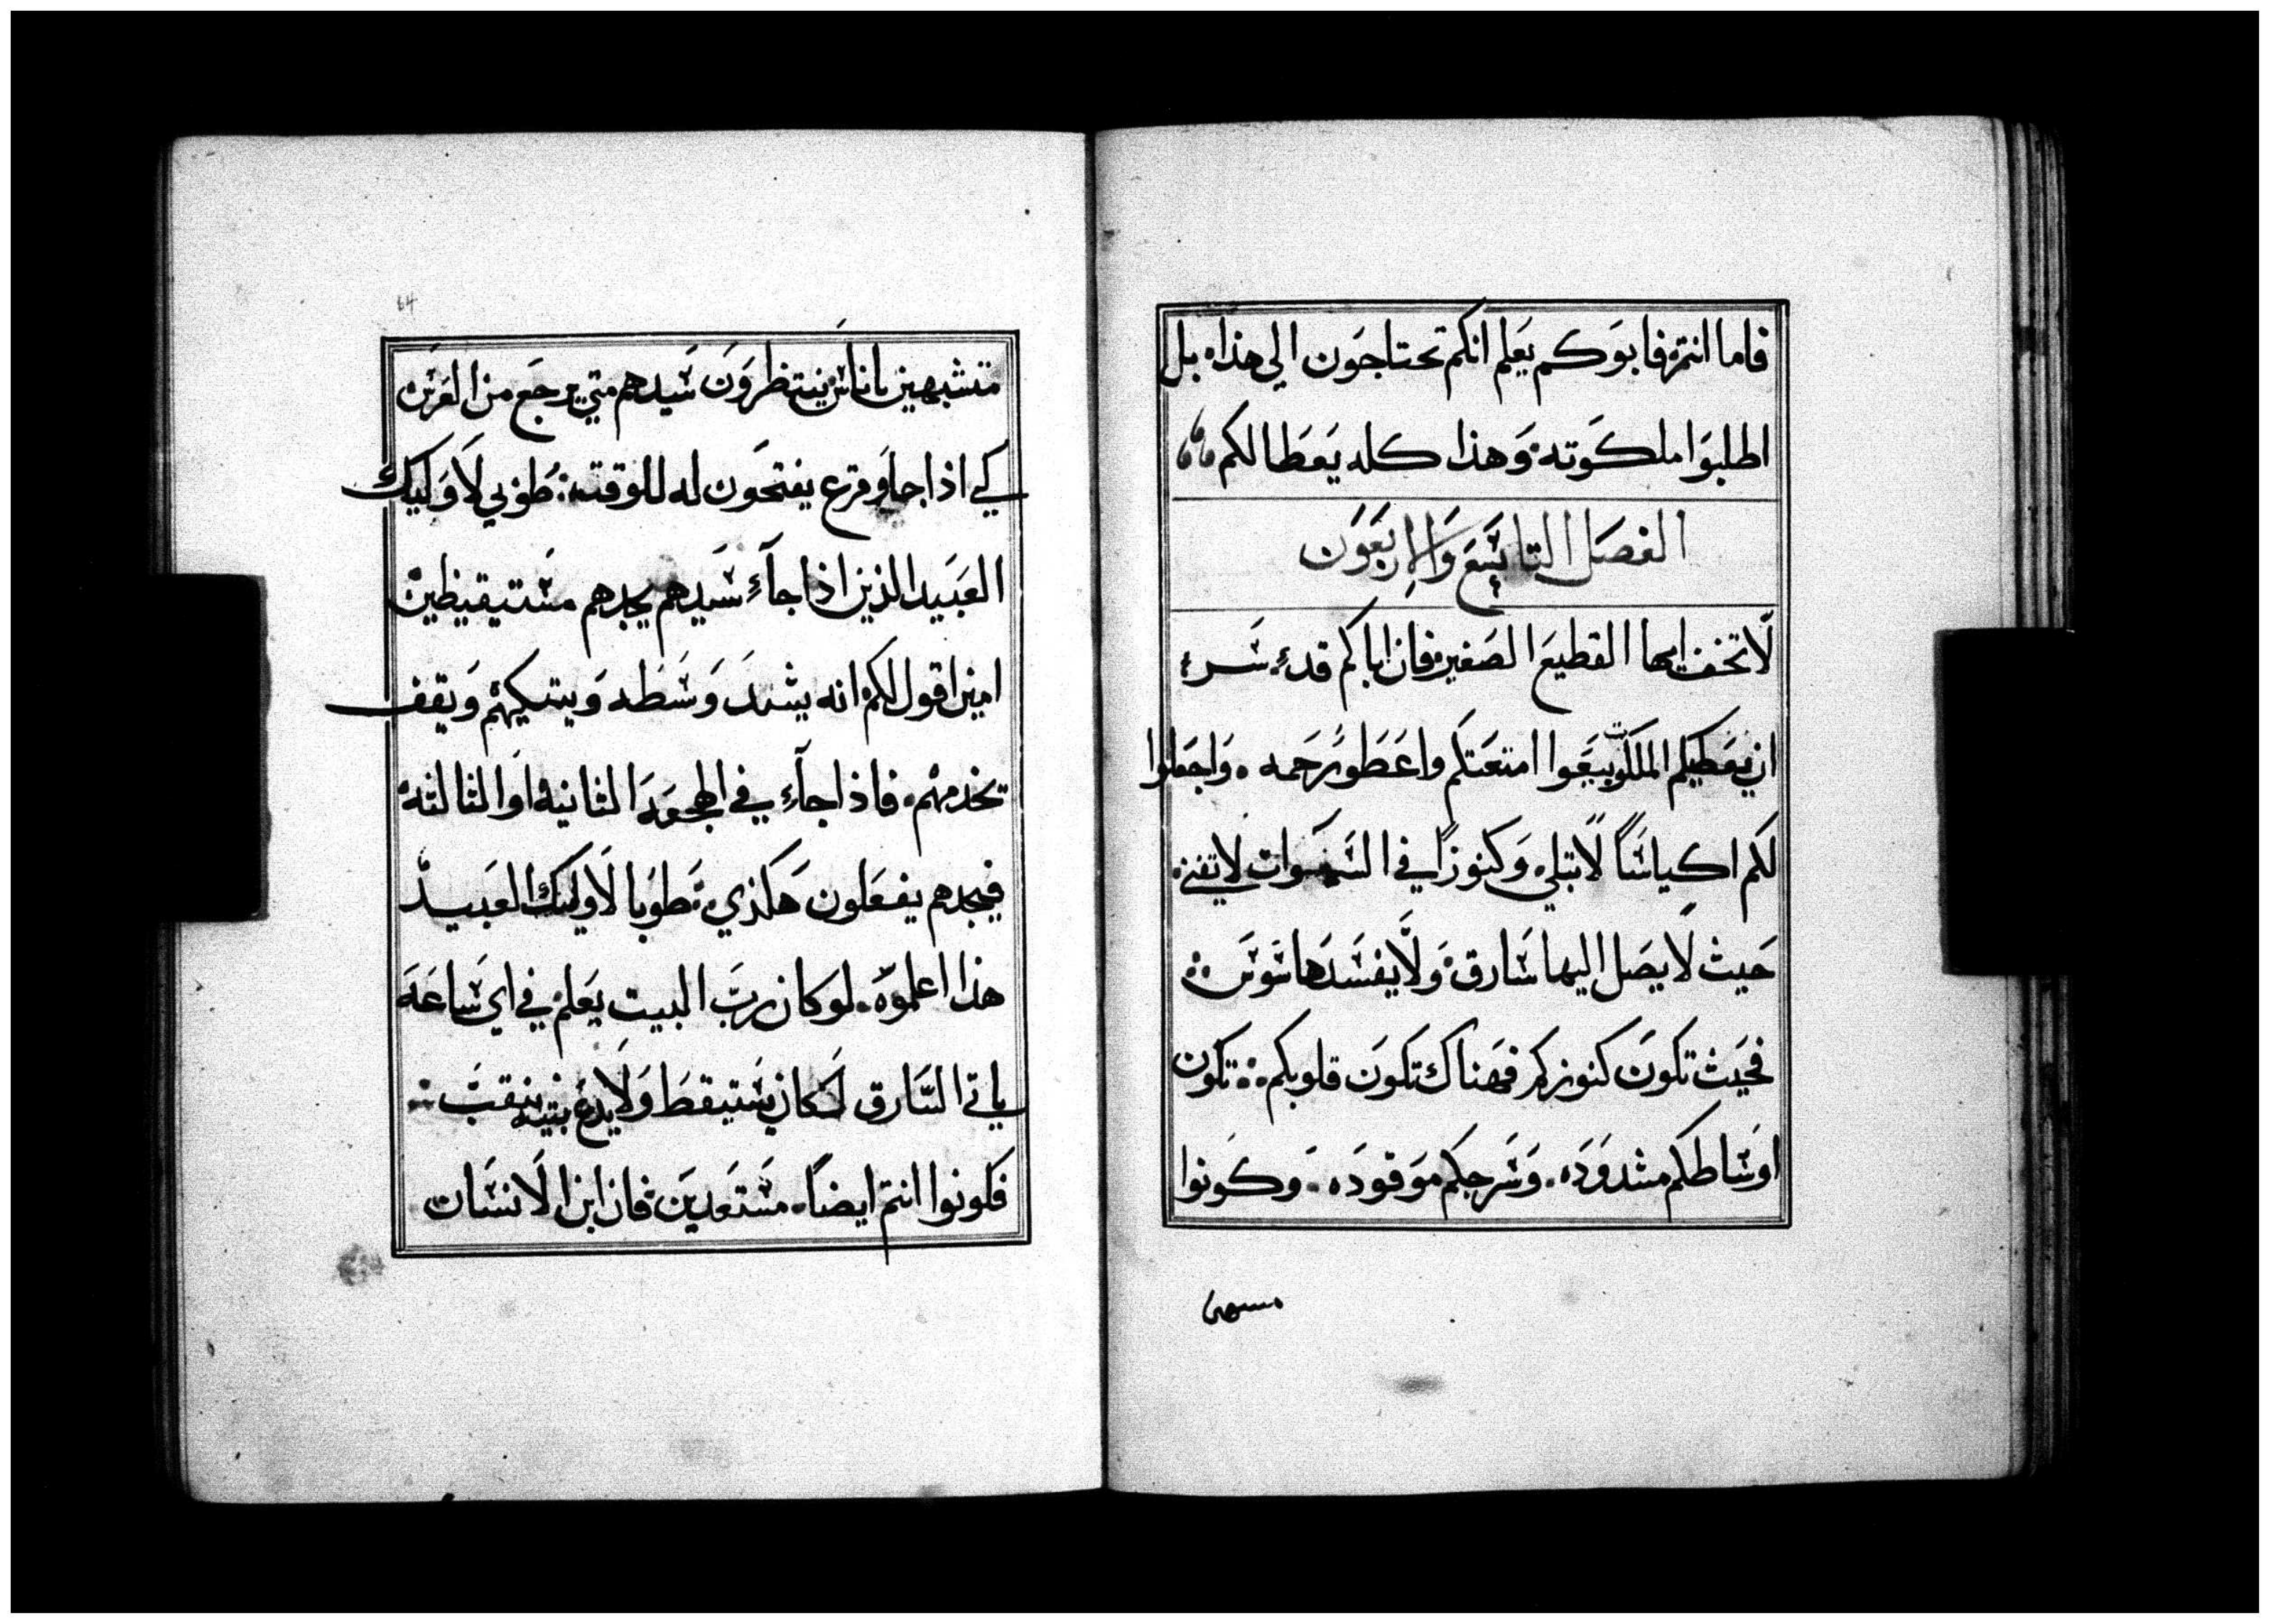 فاما انتم فابوكم يعلم انكم تحتاجون الي هذا بل
اطلبوا ملكوته وهذا كله يعطا لكم
الفصل التاسع والاربعون
لا تخف ايها القطيع الصغير فان اباكم قد سر
ان يعطيكم الملكوت بيعوا امتعتكم واعطوا رحمه واجعلوا
لكم اكياسًا لا تبلي وكنوزًا في السموات لا تفني
حيث لا يصل اليها سارق ولا يفسدها سوس
فحيث تكون كنوزكم فهناك تكون قلوبكم تكون
اوساطكم مشدوده وسرجكم موقوده وكونوا
متشبهين باناس ينتظرون سيدهم متي يرجع من العرس
كي اذا جا وقرع يفتحون له للوقت طوبي لاوليك
العبيد الذين اذا جآء سيدهم يجدهم مستيقيظين
امين اقول لكم انه يشد وسطه ويتكيهم ويقف
يخدمهم فاذا جآء في الهجعه الثانيه او الثالثه
فيجدهم يفعلون هكذي طوبا لاوليك العبيد
هذا اعلموه لو كان رب البيت يعلم في اي ساعة
ياتي السارق لكان يستيقط ولا يدع بيته ينقب
فكونوا انتم ايضًا مستعدين فان ابن الانسان
64